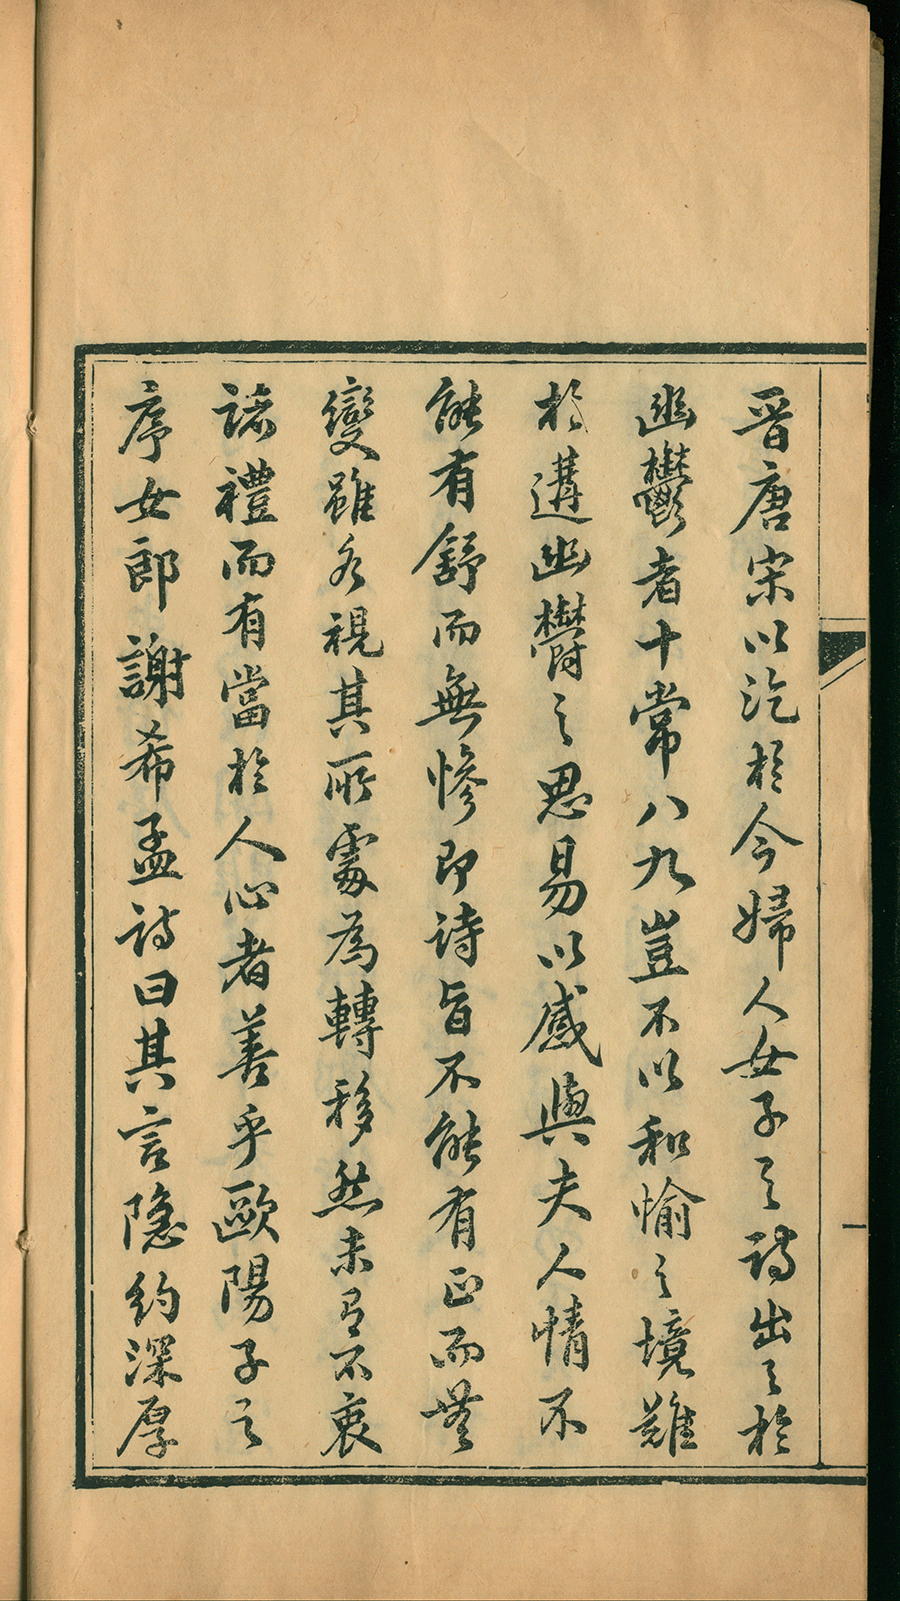 晉唐宋以迄於今婦人女子之詩出之於
幽鬱者十常八九豈不以和愉之境難
於遘幽鬱之思易以感與夫人情不
能有舒而無慘即詩旨不能有正而無
變雖各視其所處為轉移然未有不衷
諸禮而有當於人心者善乎歐陽子之
序女郎謝希孟詩曰其言隱約深厚